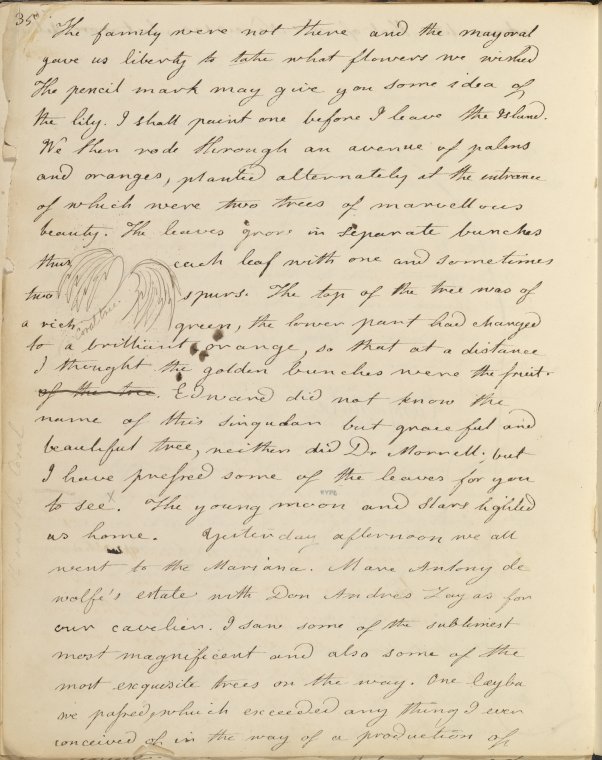 35
The family were not there and the mayoral
gave us liberty to take what flowers we wished
The pencil mark may give you some idea of
the lily. I shall paint one before I leave the Island.
We then rode through an avenue of palms
and oranges, planted alternately at the entrance
of which were two trees of marvellous
beauty. The leaves grow in separate bunches
thus each leaf with one and sometimes
two spurs. The top of the tree was of
coral tree.
a rich green, the lower part had changed
to a brilliant orange, so that at a distance
I thought the golden bunches were the fruit
of the tree. Edward did not know the
name of this singular but graceful and
beautiful tree, neither did Dr Morrell; but
I have presred some of the leaves for you
to see. X The young moon and stars lighted
NYPL
us home. Yesterday afternoon we all
went to the Mariana. Marc Antony de
wolfe's estate with Don Andres Zayas for
our cavelier. I saw some of the sublimest
most magnificent and also some of the
most exquesite trees on the way. One
we passed, which exceeded any thing I ever
conceived of in the way of a production of